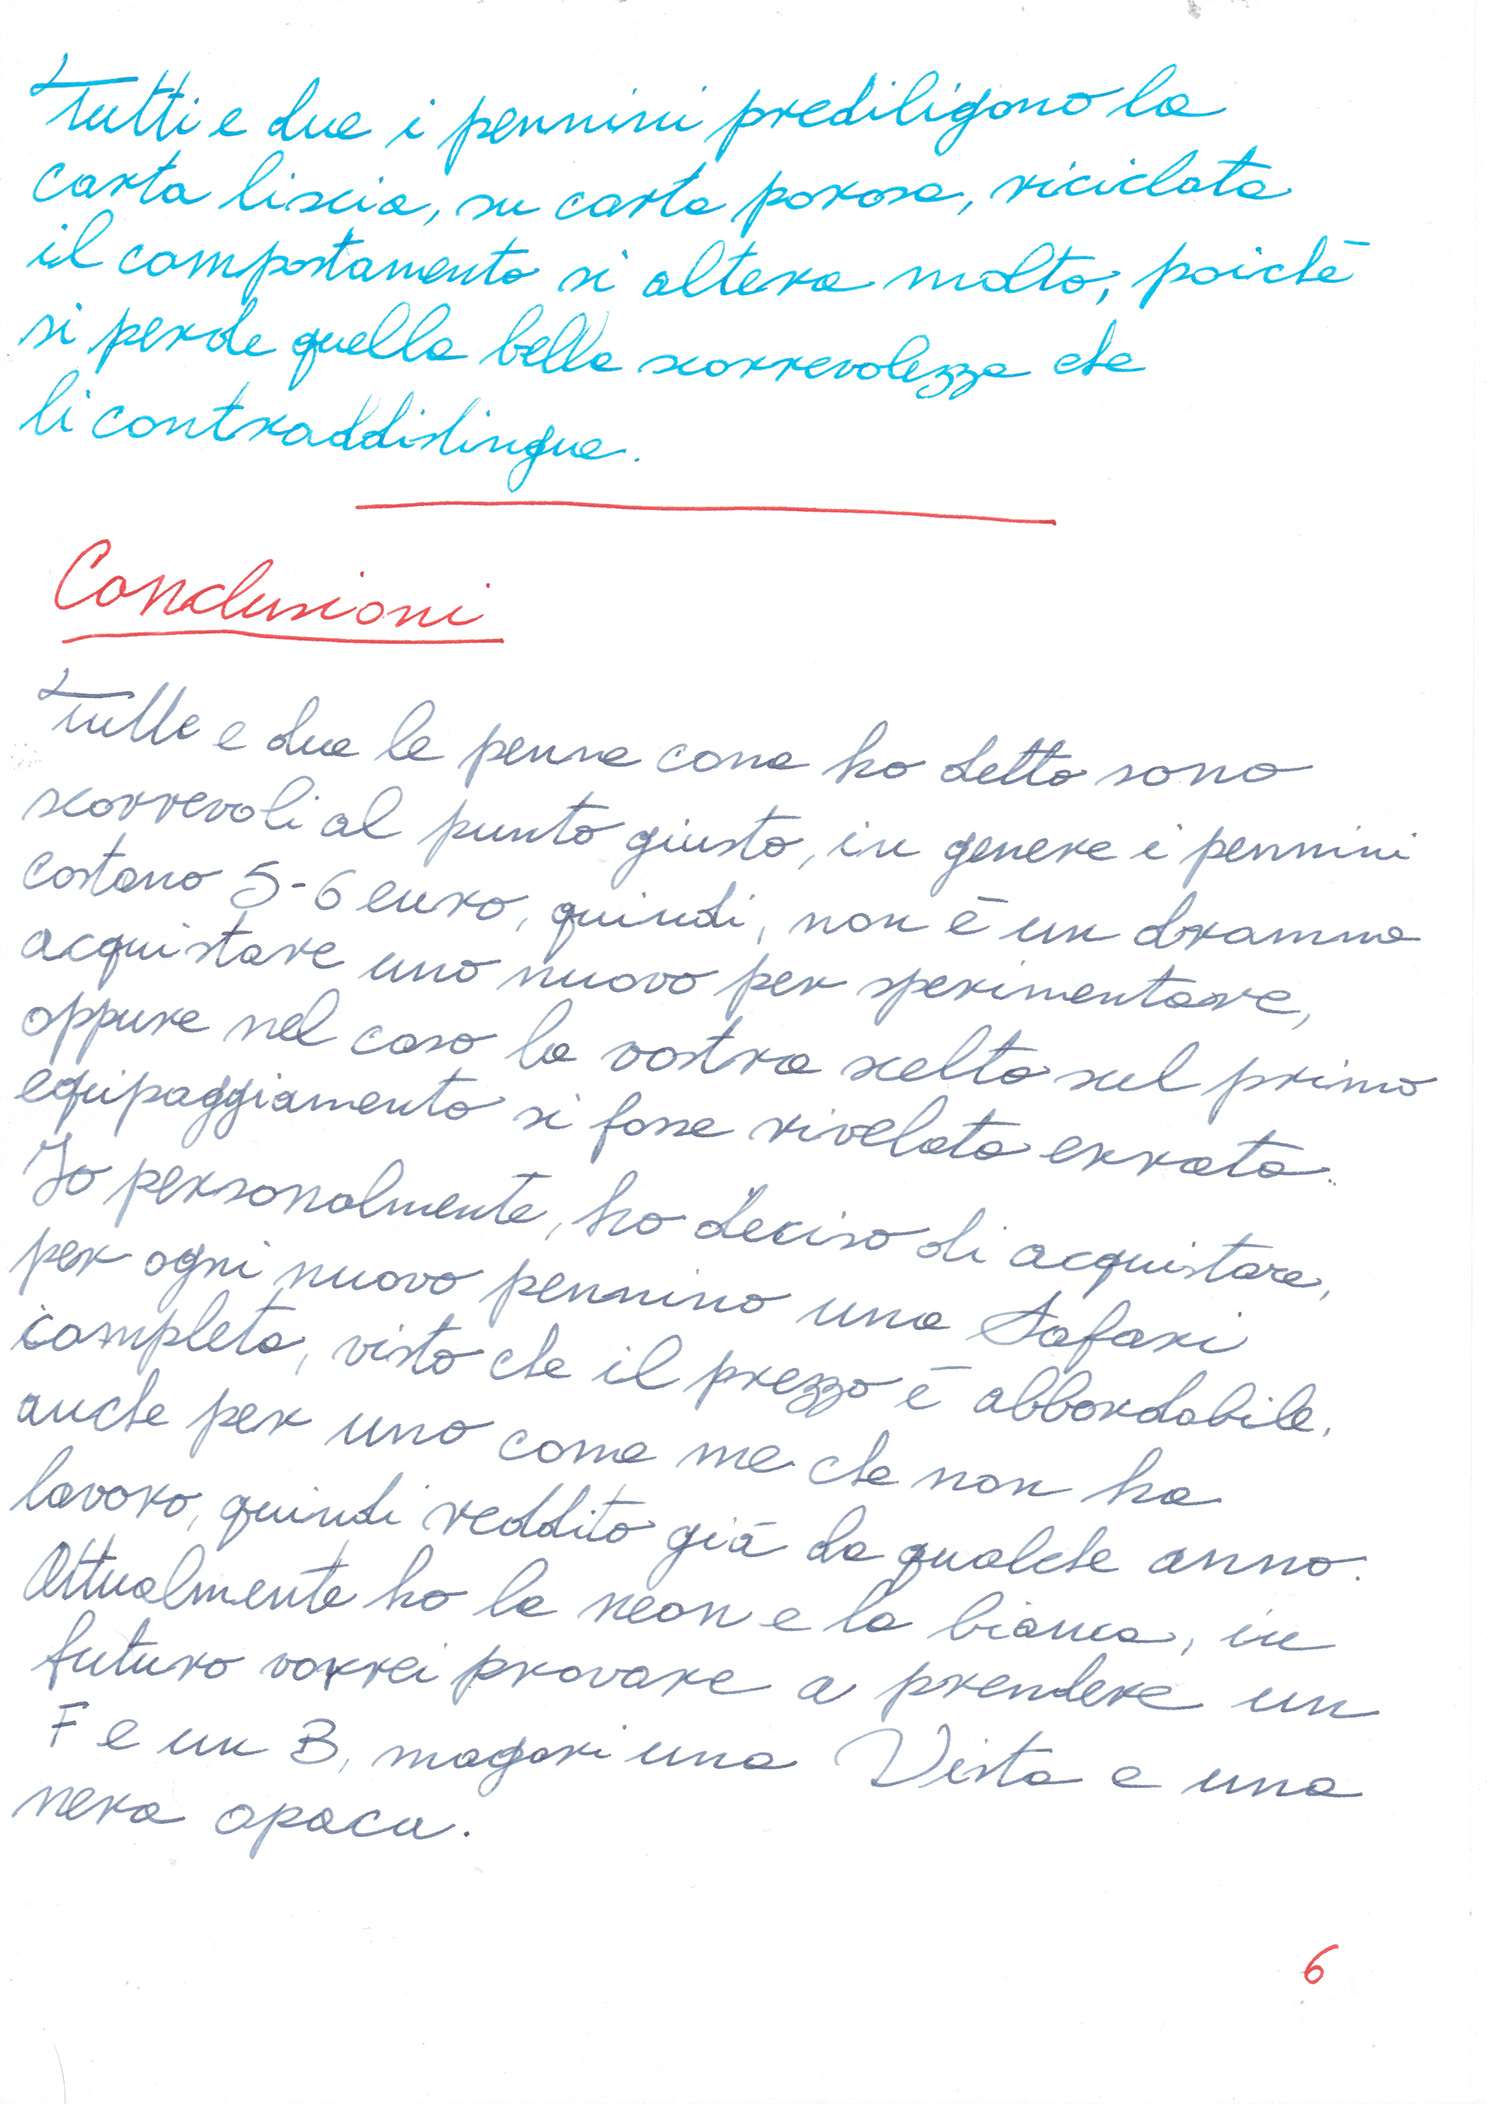 Tutti e due i pennini prediligono la
carta liscia, su carta porosa, riciclata
il comportamento si altera molto, poichè
si perde quella bella scorrevolezza che
li contraddistingue.
Conclusioni
Tutte e due le penne come ho detto sono
scorrevoli al punto giusto, in genere i pennini
costano 5-6 euro, quindi, non è un dramma
acquistare uno nuovo per sperimentare,
oppure nel caso la vostra scelta sul primo
equipaggiamento si fosse rivelata errata.
Io personalmente, ho deciso di acquistare,
per ogni nuovo pennino una Safari
completa, visto che il prezzo è abbordabile,
anche per uno come me che non ha
lavoro, quindi reddito già da qualche anno.
Attualmente ho la neon e la bianca, in
futuro vorrei provare a prendere un
F e un B, magari una Vista e una
nera opaca.
6